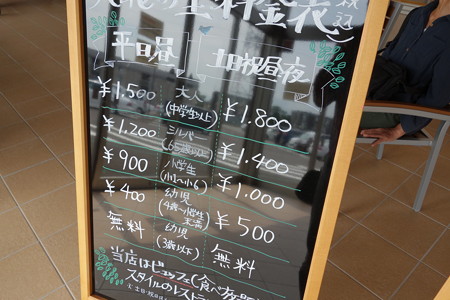 料金表 税込
平日昼 土日祝昼夜
¥1.500 大人 (中学生以上) ¥1.800
¥1.200 シルバー (65歳以上) ¥1.400
¥900 小学生 (小1〜小6) ¥1.000
¥400 幼児 (4歳〜小学生未満) ¥500
無料 幼児 (3歳以下) 無料
当店はビュッフェ(食べ放題
スタイルのレストラ